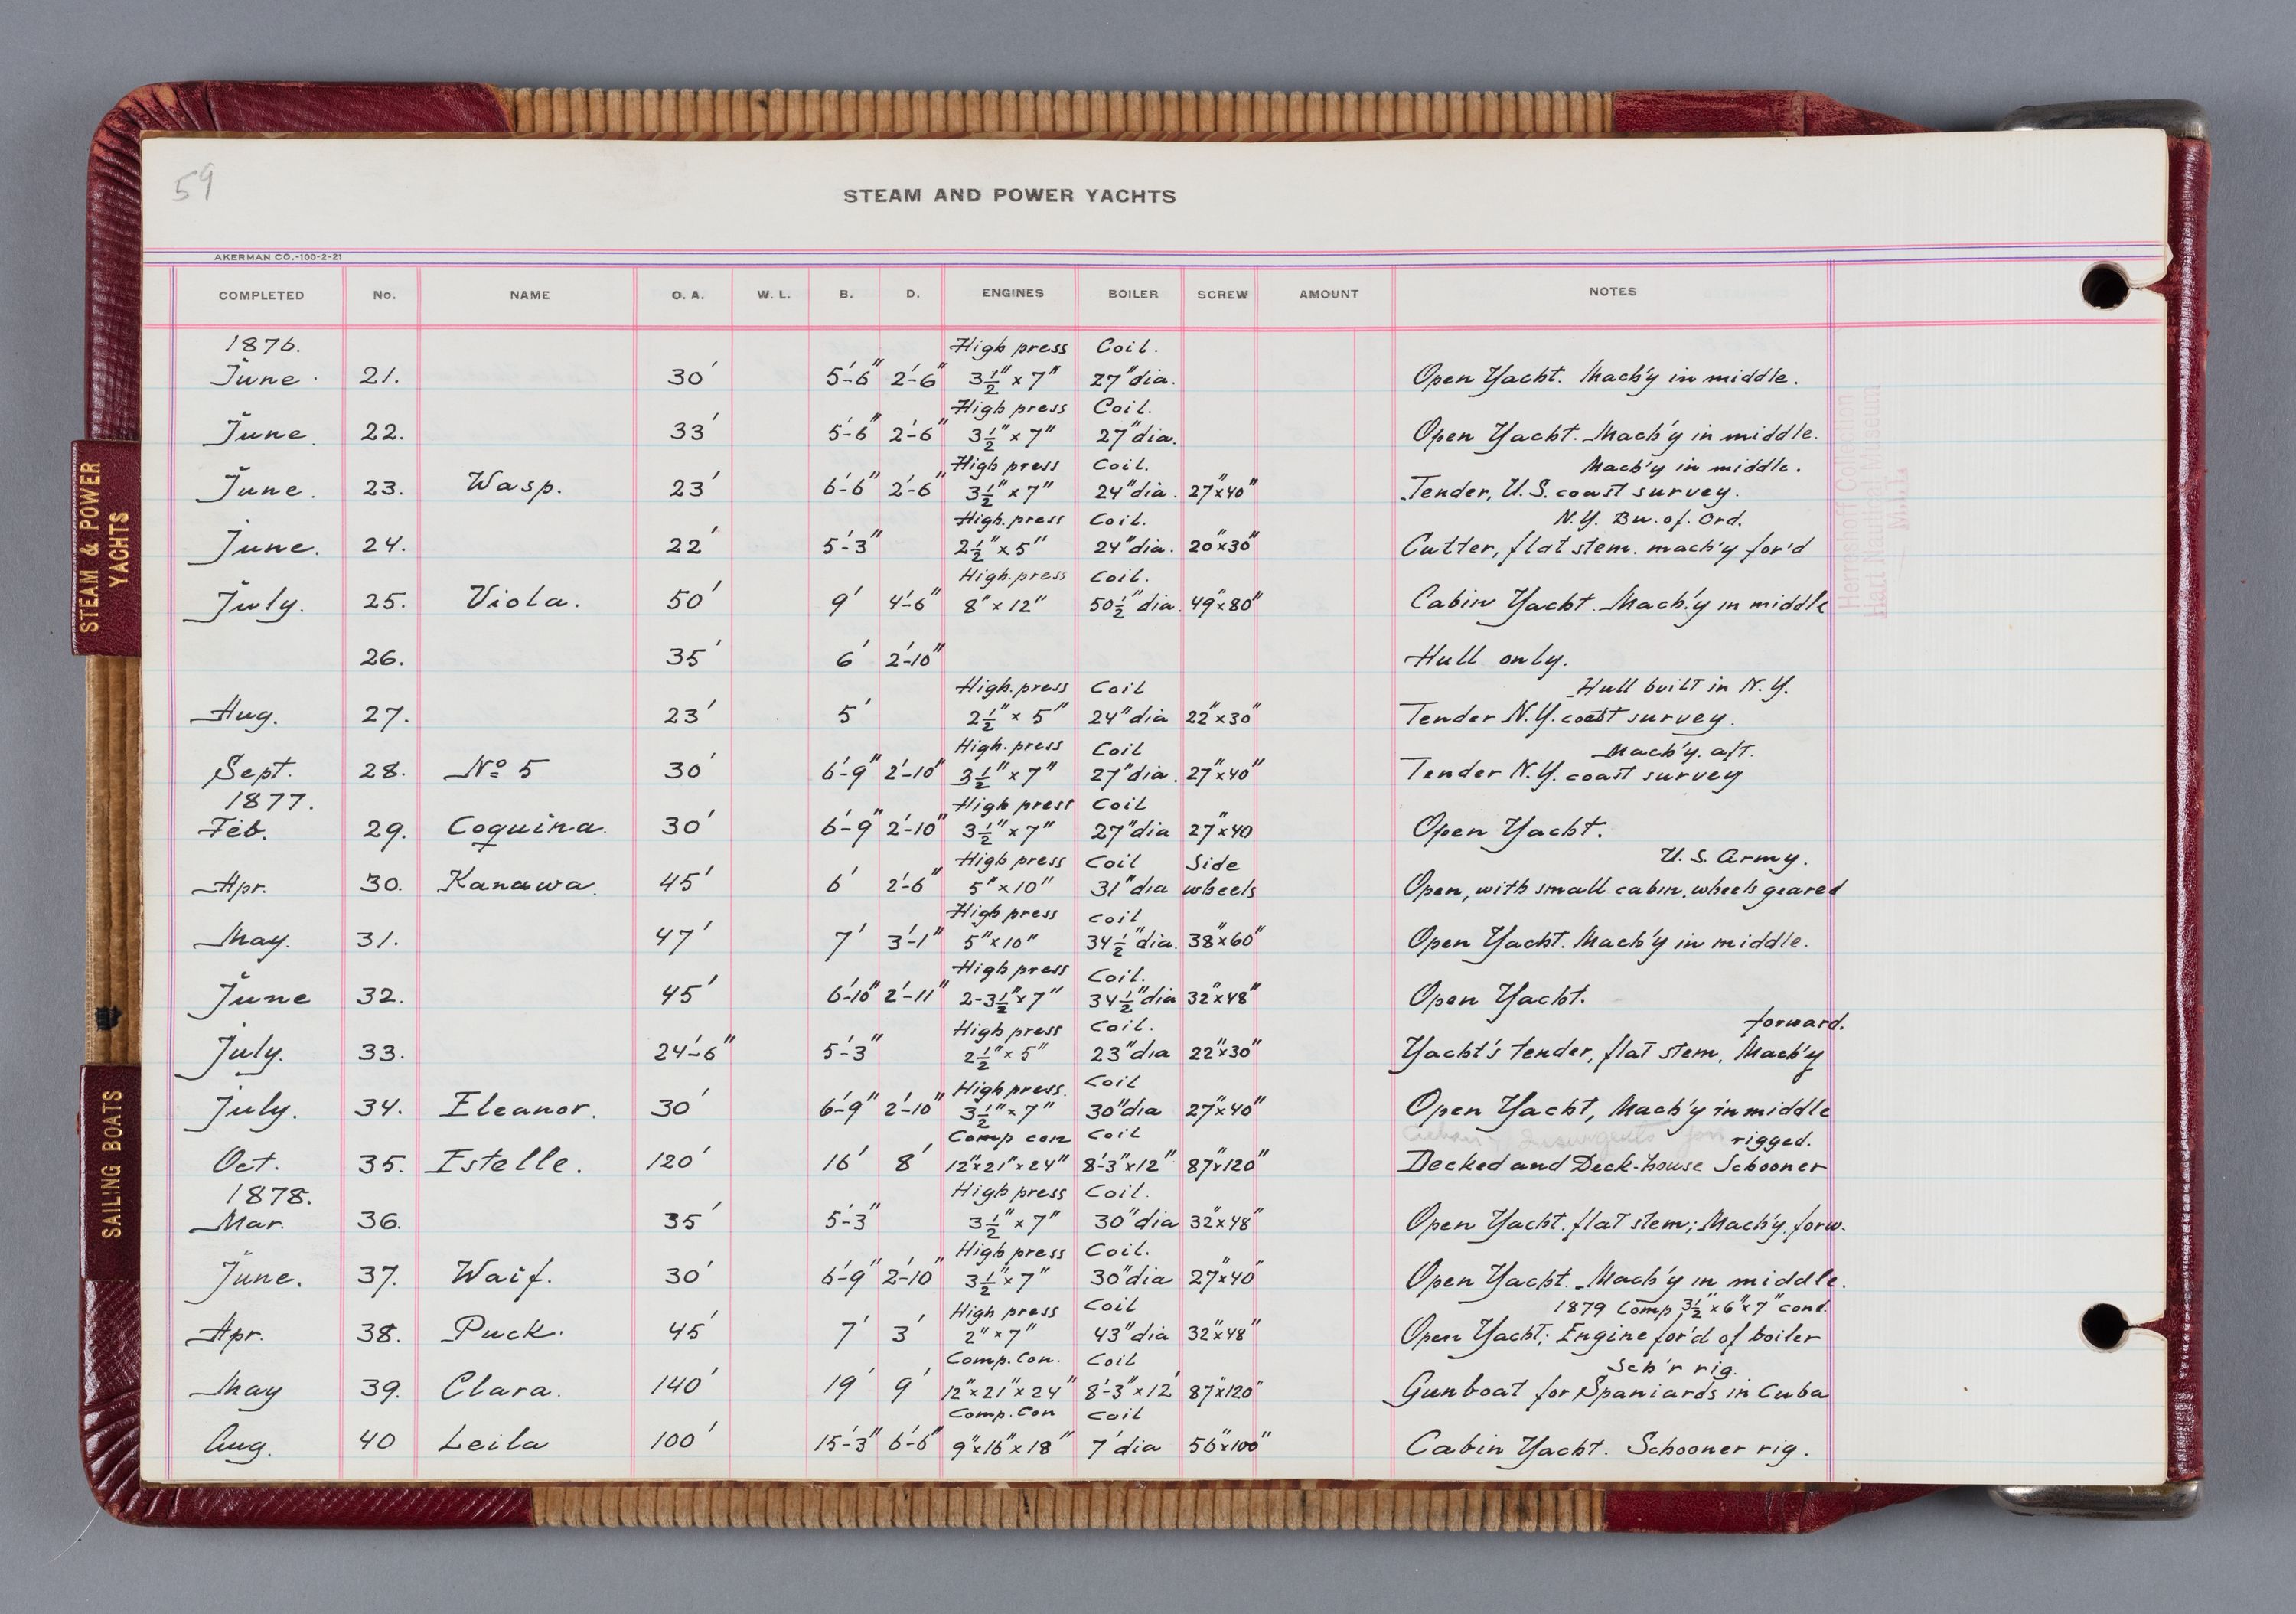 59
STEAM AND POWER YACHTS
AKERMAN CO.-100-2-21
COMPLETED No. NAME O. A. W. L. B. D. ENGINES BOILER SCREW AMOUNT NOTES
1876. High press Coil.
June. 21. 30' 5'-6" 2'-6" 3½"x7" 27"dia. Open Yacht. Mach'y in middle.
High press Coil.
June. 22. 33' 5'-6" 2'-6" 3½"x7" 27"dia. Open Yacht. Mach'y in middle.
High press Coil. Mach'y in middle.
June. 23. Wasp. 23' 6'-6" 2'-6" 3½"x7" 24"dia. 27"x40" Tender, U.S. coast survey.
High.press Coil. N.Y. Bu. of. Ord.
June. 24. 22' 5'-3" 2½"x5" 24"dia. 20"x30" Cutter, flat stem. mach'y for'd
High.press Coil.
July. 25. Viola. 50' 9' 4'-6" 8"x12" 50½"dia. 49"x80" Cabin Yacht. Mach'y in middle
26. 35' 6' 2'-10" Hull only.
High.press Coil Hull built in N.Y.
Aug. 27. 23' 5' 2½"x5" 24"dia 22"x30" Tender N.Y. coast survey.
High.press Coil Mach'y. aft.
Sept. 28. No 5 30' 6'-9" 2'-10" 3½"x7" 27"dia. 27"x40" Tender N.Y. coast survey
1877. High press Coil
Feb. 29. Coquina. 30' 6'-9" 2'-10" 3½"x7" 27"dia 27"x40 Open Yacht.
High press Coil Side U.S. Army.
Apr. 30. Kanawa. 45' 6' 2'-6" 5"x10" 31"dia wheels Open, with small cabin. wheels geared
High press Coil
May. 31. 47' 7' 3'-1" 5"x10" 34½"dia. 38"x60" Open Yacht. Mach'y in middle.
High press Coil.
June 32. 45' 6'-10" 2'-11" 2-3½"x7" 34½"dia 32"x48" Open Yacht.
High press Coil. forward.
July. 33. 24'-6" 5'-3" 2½"x5" 23"dia 22"x30" Yacht's tender, flat stem, Mach'y
High press. Coil
July. 34. Eleanor. 30' 6'-9" 2'-10" 3½"x7" 30"dia 27"x40" Open Yacht, Mach'y in middle
Comp con Coil rigged.
Oct. 35. Estelle. 120' 16' 8' 12"x21"x24" 8'-3"x12" 87"x120" Decked and Deck-house Schooner
1878. High press Coil.
Mar. 36. 35' 5'-3" 3½"x7" 30"dia 32"x48" Open Yacht. flat stem; Mach'y. forw.
High press Coil.
June. 37. Waif. 30' 6'-9" 2'-10" 3½"x7" 30"dia 27"x40" Open Yacht. Mach'y in middle.
High press Coil 1879 Comp 3½"x6"x7" cond.
Apr. 38. Puck. 45' 7' 3' 2"x7" 43"dia 32"x48" Open Yacht; Engine for'd of boiler
Comp. Con. Coil Sch'r rig.
May 39. Clara. 140' 19' 9' 12"x21"x24" 8'-3"x12' 87"x120" Gunboat for Spaniards in Cuba
Comp. Con Coil
Aug. 40 Leila 100' 15'-3" 6'-6" 9"x16"x18" 7'dia 56"x100" Cabin Yacht. Schooner rig.
STEAM & POWER
YACHTS
SAILING BOATS